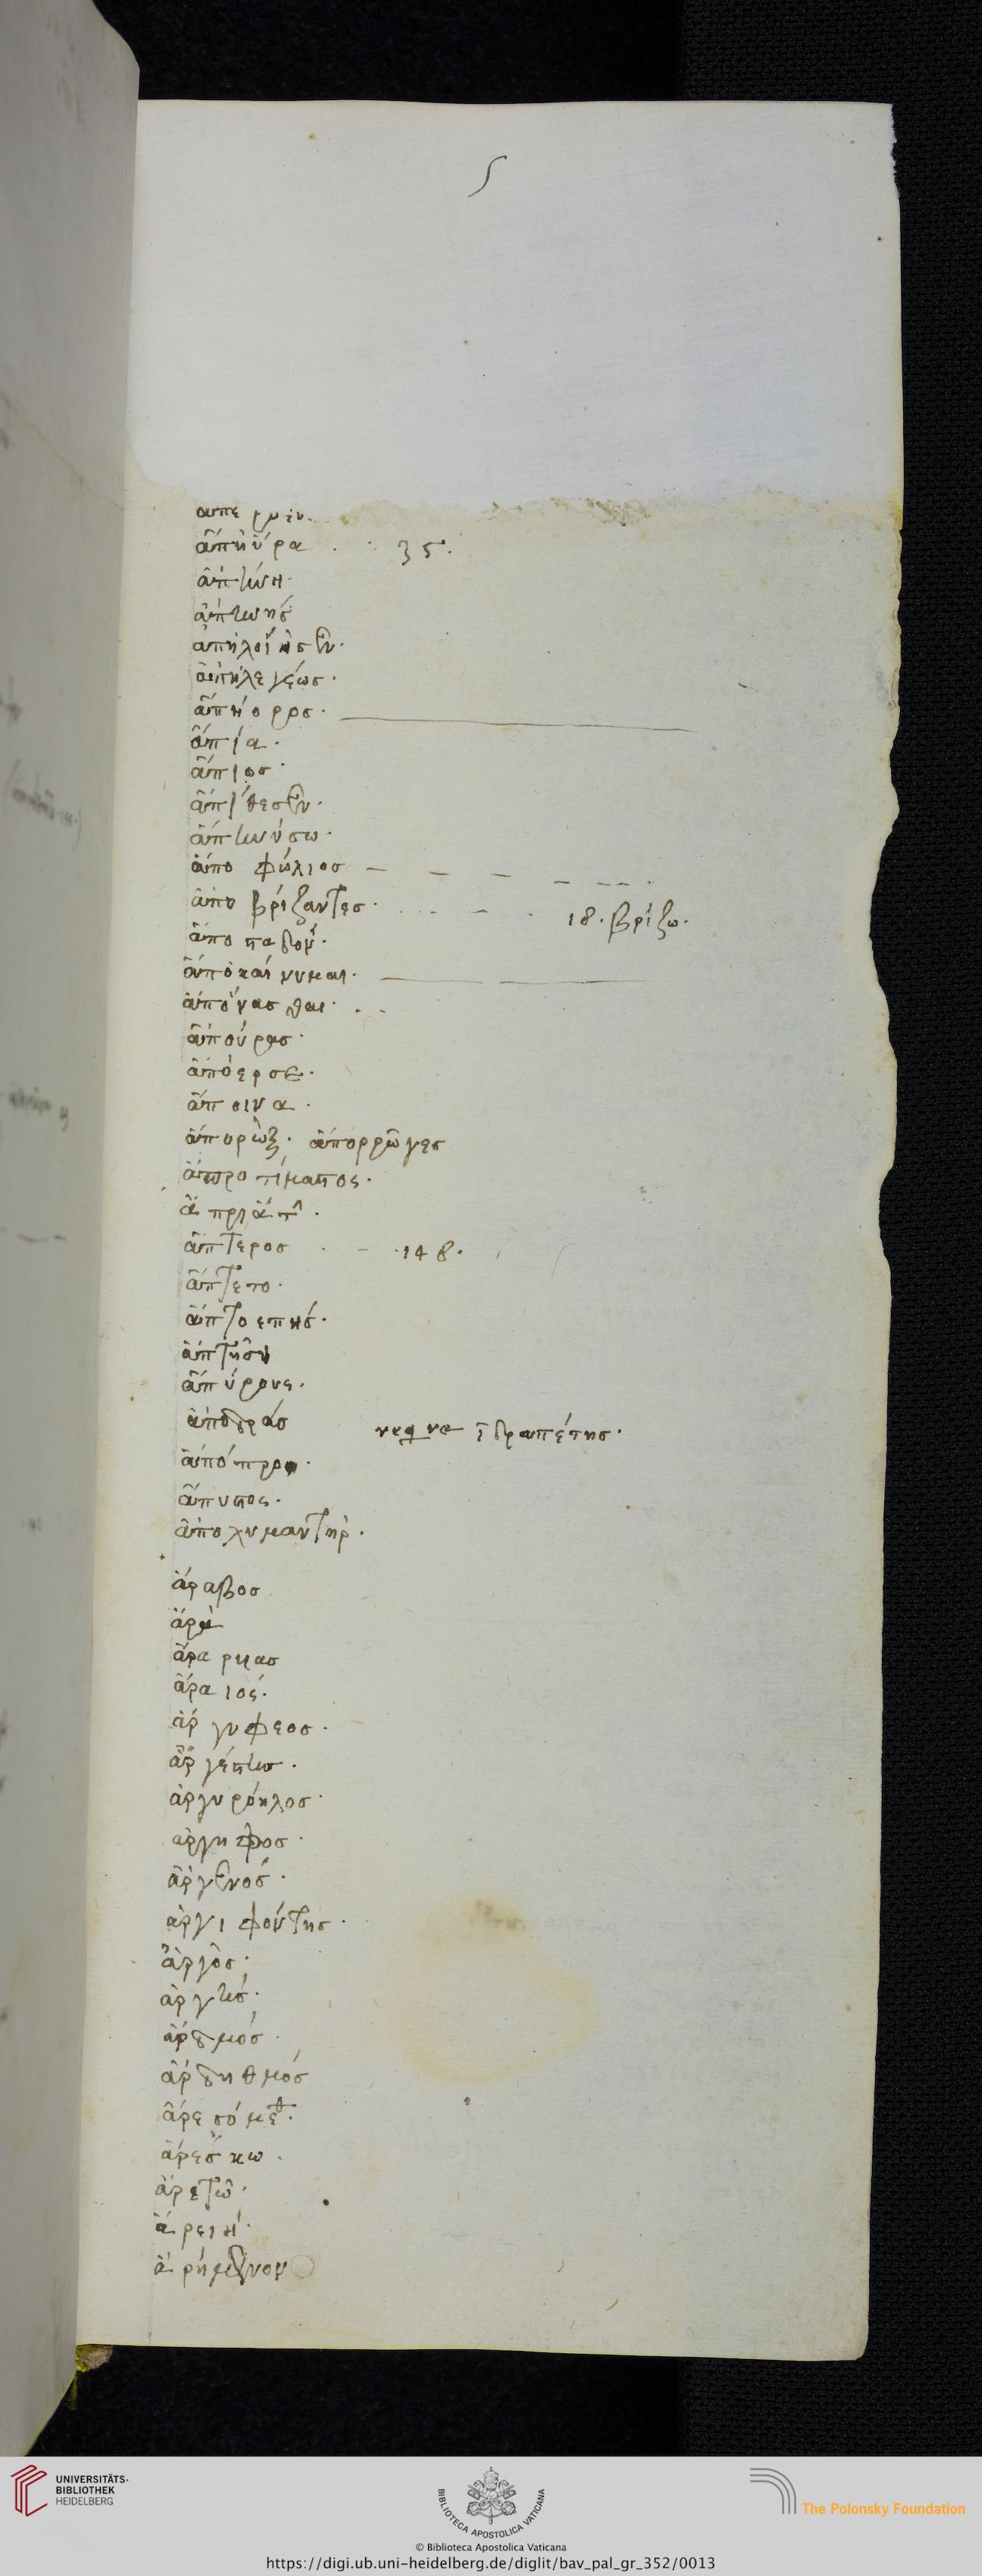 5
ἀπηύρα . . 35.
ἀπήνη.
ἀπηνής
ἀπηλοίησεν.
ἀπηλεγέως.
ἀπήορος.
ἀπία.
ἄπιος.
ἀπίθεσεν.
ἀπινύσσω.
ἀποφώλιος
ἀποβρίξαντες. 18. βρίζω.
ἀποκαίνυμαι.
ἀπόνασθαι.
ἀπούρας.
ἀπόερσε.
ἄποινα.
ἀπορώξ. ἀπορρῶγες
ἀπροτίμαστος.
ἀπριάτην.
ἄπτερος . - .148.
ἅπτετο.
ἁπτοεπής.
ἀπτῆσι
ἀπύρους.
ἀποδράς neqre ἰ δραπέτης.
ἀπόπρο.
ἄπυστος.
ἀποχυμαντήρ.
ἄραβος
ἀρά
ἀραρυῖας
ἀραιός.
ἀργύφεος.
ἀργέστης.
ἀργυρόηλος.
ἄργυφος.
ἀργενός.
ἀργιφόντης.
ἀργός.
ἀργής.
ἀρδμός.
ἀρηθμός
ἀρεσόμεθα.
ἀρέσκω.
ἀρετῶ.
ἀρειή.
ἀρήμενον
UNIVERSITÄTS-
BIBLIOTHEK
HEIDELBERG
BIBLIOTECA APOSTOLICA VATICANA
The Polonsky Foundation
© Biblioteca Apostolica Vaticana
https://digi.ub.uni-heidelberg.de/diglit/bav_pal_gr_352/0013